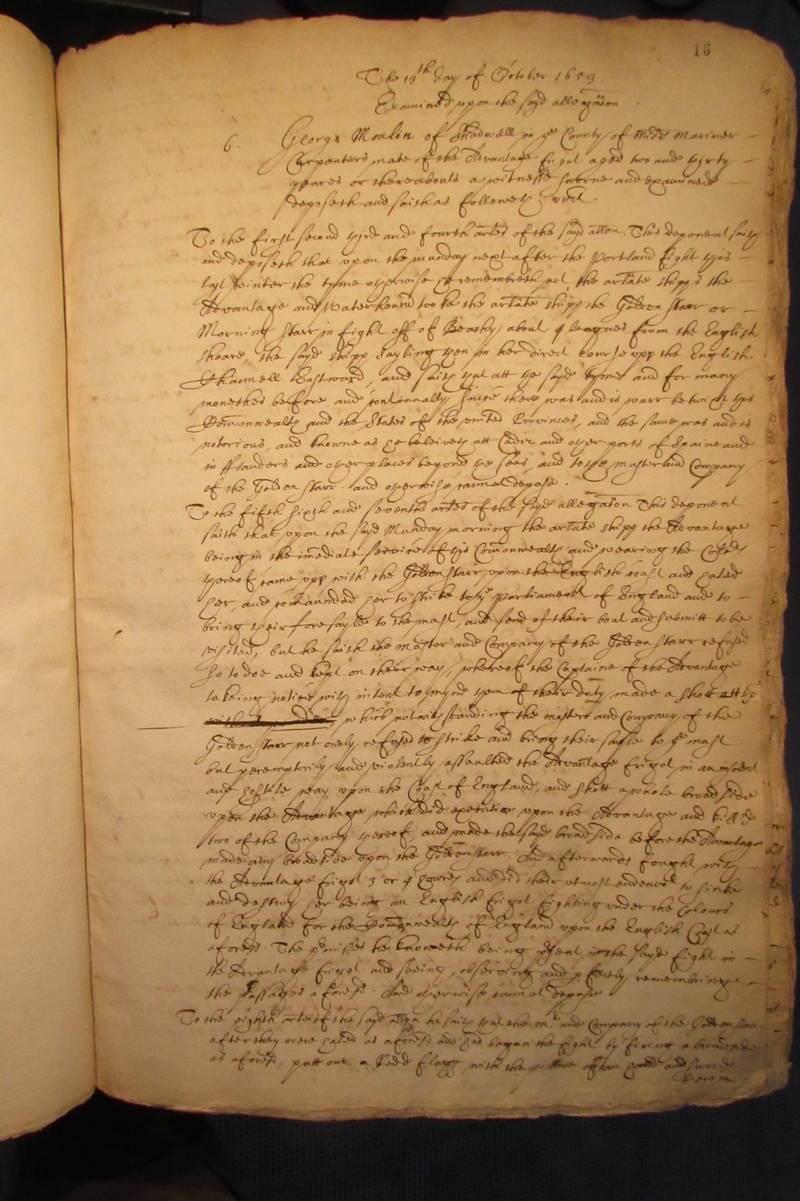 16
The 19th day of October 1653
Examined upon the sayd allegation.
6. George Moalin of Shadwell in ye County of Midds Mariner
Carpenters mate of the Advantage frigot aged two and thirty
yeares or thereabouts a witnesse sworne and examined
deposeth and saith as followeth vizt.
To the first second third and fourth artles of the sayd allon. This deponent saith
and deposeth that upon the munday next after the Portland fight this
last winter the tyme otherwise he remembreth not, the arlate shipps the
Advantage and Waterhound tooke the arlate shipp the Golden Starr or
Morning Starr in fight off of Beachy, about 4 leagues from the English
shoare, the sayd shipp sayling then in her direct course upp the English
Channell Eastward, and saith that att the sayd tyme and for many
monethes before and continually since there was and is warr betwixt this
Comonwealth and the States of the united Provinces, and the same was and is
notorious, and knowne as he beleiveth att Cadiz and other ports of Spaine and
in fflanders and other places beyond the seas, and to the master and Company
of the Golden Starr. and otherwise cannot depose.
To the fifth sixth and seventh artles of the sayd allegation This deponent
saith that upon the sayd Munday morning the arlate shipp the Advantage
being in the imediate service of this Comonwealth and wearing the Colours
thereof came upp with the Golden Starr upon the English coast and haled
her, and comaunded her to strike to the Parliament of England and to
bring their foresayle to the mast, and send of their boat and submitt to be
visited, but he saith the Master and Company of the Golden Starr refused
so to doe and kept on their way, whereof the Captaine of the Advantage
taking notice with intent to mynd them of their duty made a shott att the
which notwithstanding the master and Company of the
Golden Starr not onely refused to strike and bring their sayle to ye mast
but peremptorily and violently assaulted the Advantage frigot in an
and hostile way upon the Coast of England, and shott a whole broad side
upon the Advantage, which did execution upon the Advantage and killed
two of the Company thereof, and made the sayd broad side before the Advantage
made any broadside upon the Golden Starr. And afterwards fought with
the Advantage frigot 3 or 4 howres and did their utmost endeavor to sinke
and destroy her being an English frigot fighting under the Colours
of England for the Comonwealth of England upon the English Coast as
aforesd. The premises he knoweth being present in the sayd fight in
the Advantage frigot and seeing, observing and perfectly remembring
the passages aforesd. And otherwise cannot depose
To the eighth artle of the sayd allon he saith that the mr and Company of the Golden Starr
after they were haled as aforesd and had began the fight by firing a broadside
as aforesd, putt out a Redd flagg with the